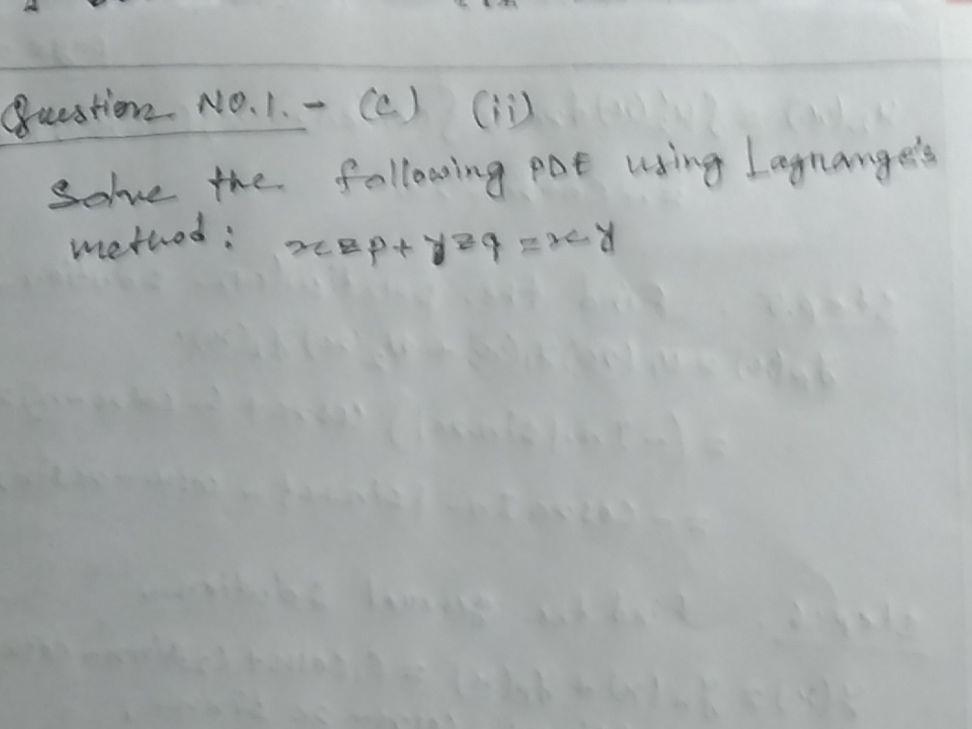 Question No.1. - (c) (ii)
Solve the following PDE using Lagrange's
method: xzp + yzq = xy